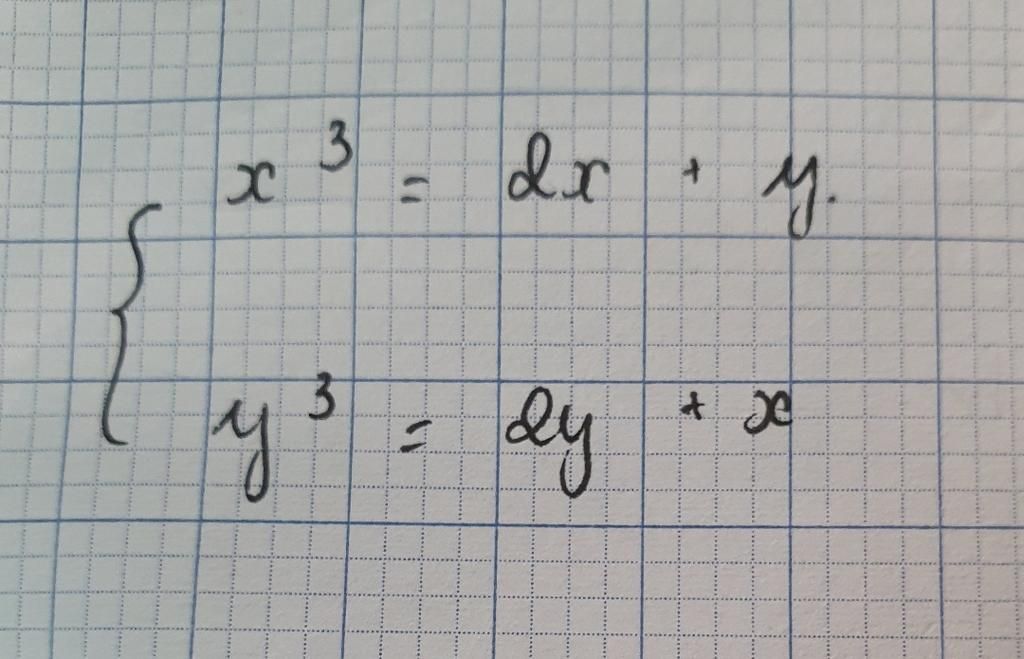 x³ = 2x + y.
y³ = 2y + x